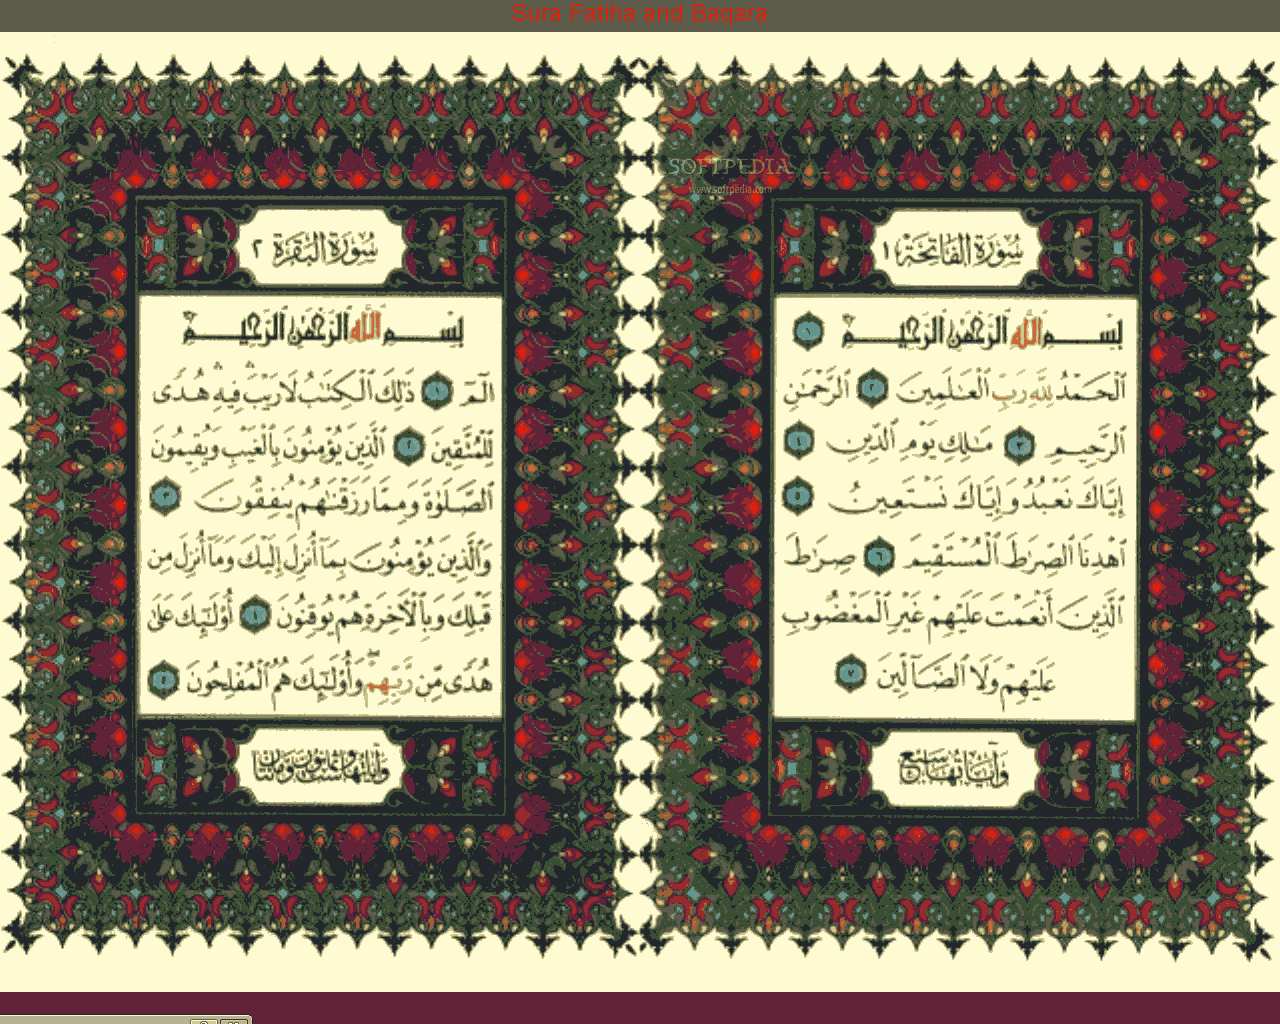 Sura Fatiha and Baqara
SOFTPEDIA
www.softpedia.com
سُورَةُ الفَاتِحَةِ ١
بِسْمِ ٱللَّهِ ٱلرَّحْمَٰنِ ٱلرَّحِيمِ ١
ٱلْحَمْدُ لِلَّهِ رَبِّ ٱلْعَٰلَمِينَ ٢ ٱلرَّحْمَٰنِ
ٱلرَّحِيمِ ٣ مَٰلِكِ يَوْمِ ٱلدِّينِ ٤
إِيَّاكَ نَعْبُدُ وَإِيَّاكَ نَسْتَعِينُ ٥
ٱهْدِنَا ٱلصِّرَٰطَ ٱلْمُسْتَقِيمَ ٦ صِرَٰطَ
ٱلَّذِينَ أَنْعَمْتَ عَلَيْهِمْ غَيْرِ ٱلْمَغْضُوبِ
عَلَيْهِمْ وَلَا ٱلضَّآلِّينَ ٧
وَآيَاتُهَا سَبْعٌ
سُورَةُ البَقَرَةِ ٢
بِسْمِ ٱللَّهِ ٱلرَّحْمَٰنِ ٱلرَّحِيمِ
الٓمٓ ١ ذَٰلِكَ ٱلْكِتَٰبُ لَا رَيْبَ ۛ فِيهِ ۛ هُدًى
لِّلْمُتَّقِينَ ٢ ٱلَّذِينَ يُؤْمِنُونَ بِٱلْغَيْبِ وَيُقِيمُونَ
ٱلصَّلَوٰةَ وَمِمَّا رَزَقْنَٰهُمْ يُنفِقُونَ ٣
وَٱلَّذِينَ يُؤْمِنُونَ بِمَآ أُنزِلَ إِلَيْكَ وَمَآ أُنزِلَ مِن
قَبْلِكَ وَبِٱلْأَخِرَةِ هُمْ يُوقِنُونَ ٤ أُو۟لَٰٓئِكَ عَلَىٰ
هُدًى مِّن رَّبِّهِمْ ۖ وَأُو۟لَٰٓئِكَ هُمُ ٱلْمُفْلِحُونَ ٥